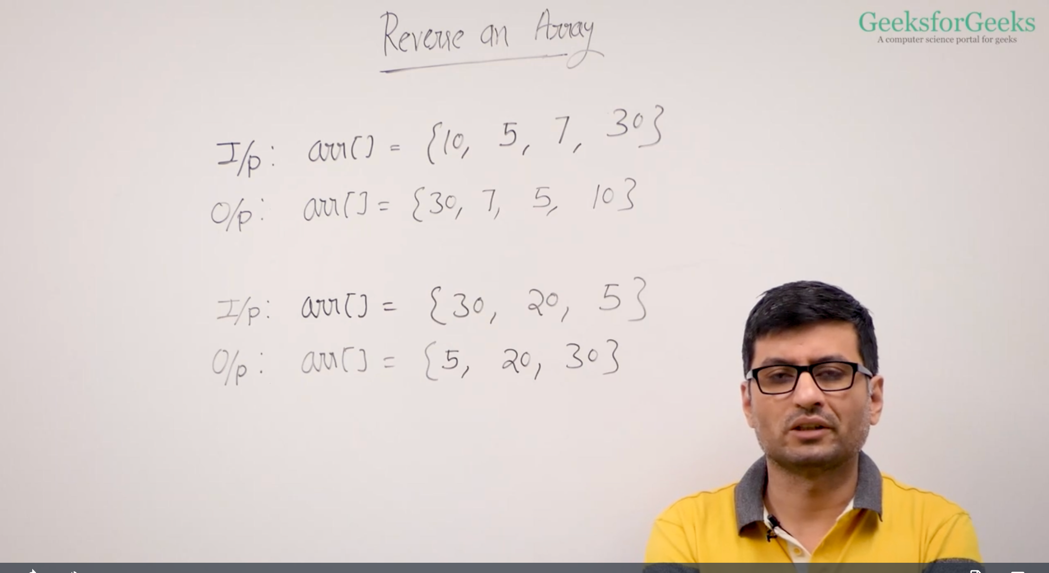 Reverse an Array
GeeksforGeeks
A computer science portal for geeks
I/p: arr[] = {10, 5, 7, 30}
O/p: arr[] = {30, 7, 5, 10}
I/p: arr[] = {30, 20, 5}
O/p: arr[] = {5, 20, 30}